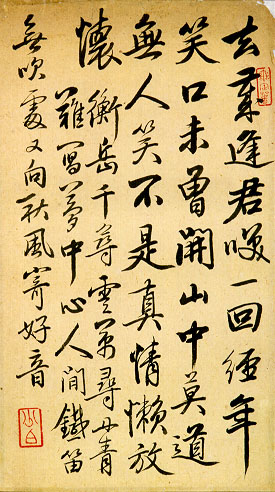 去歲逢君咲一回經年
笑口未曾開山中莫道
無人笑不是真情懶放
懷
衡岳千尋雲萬尋丹青
難寫夢中心人間鐵笛
無吹處又向秋風寄好音